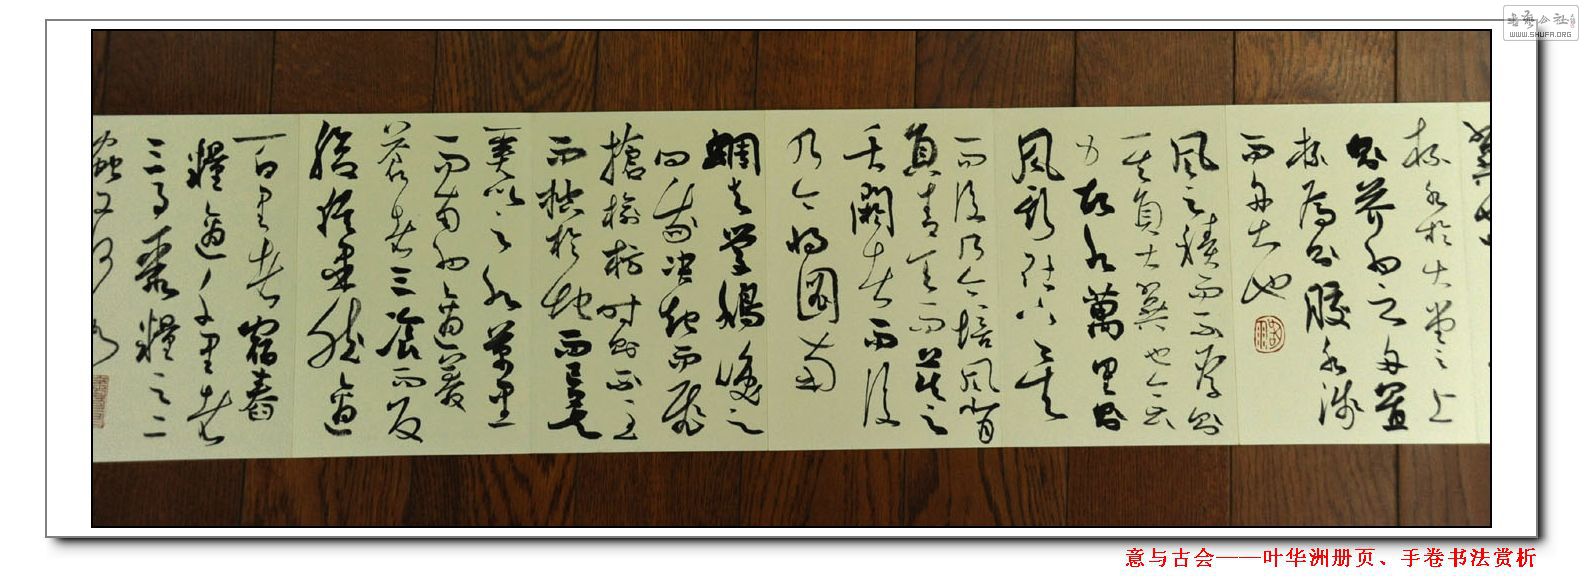 杯水於坳堂之上
則芥為之舟置
杯焉則膠水淺
而舟大也
風之積而不厚則
其負大翼也無
力故九萬里則
風斯在下矣
而後乃今培風背
負青天而莫之
夭閼者而後
乃今將圖南
蜩與學鳩笑之
曰我決起而飛
搶榆枋時則不至
而控於地而已矣
奚以之九萬里
而南為適莽
蒼者三飡而反
腹猶果然適
百里者宿舂
糧適千里者
三月聚糧之二
蟲又何知
WWW.SHUFA.ORG
意与古会——叶华洲册页、手卷书法赏析